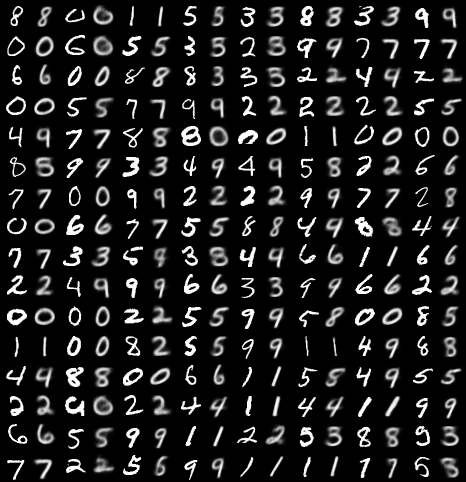 8 8 0 0 1 1 5 5 3 3 8 8 3 3 9 9
0 0 6 0 5 5 3 3 2 3 9 9 7 7 7 7
6 6 0 0 8 8 8 3 3 3 2 2 4 9 2 2
0 0 5 5 7 7 9 9 2 2 2 2 2 2 5 5
4 9 7 7 8 8 8 0 0 0 1 1 0 0 0 0
8 5 9 9 3 3 4 9 4 9 5 8 2 2 6 6
7 7 0 0 9 9 2 2 2 2 9 9 7 7 2 8
0 0 6 6 7 7 5 5 8 8 4 9 8 8 4 4
7 7 3 3 5 9 3 8 4 9 6 6 1 1 6 6
2 2 4 9 9 9 6 6 3 3 9 9 6 6 2 2
0 0 0 0 2 2 5 5 9 9 5 8 0 0 8 5
1 1 0 0 8 2 5 5 9 9 1 1 4 9 8 8
4 9 8 8 0 0 6 6 1 1 5 8 4 9 5 5
2 2 0 2 2 4 4 1 1 4 4 1 1 9 9
6 6 5 5 9 9 1 1 2 2 5 3 8 8 9 3
7 7 2 2 5 6 9 9 1 1 1 1 1 1 5 3